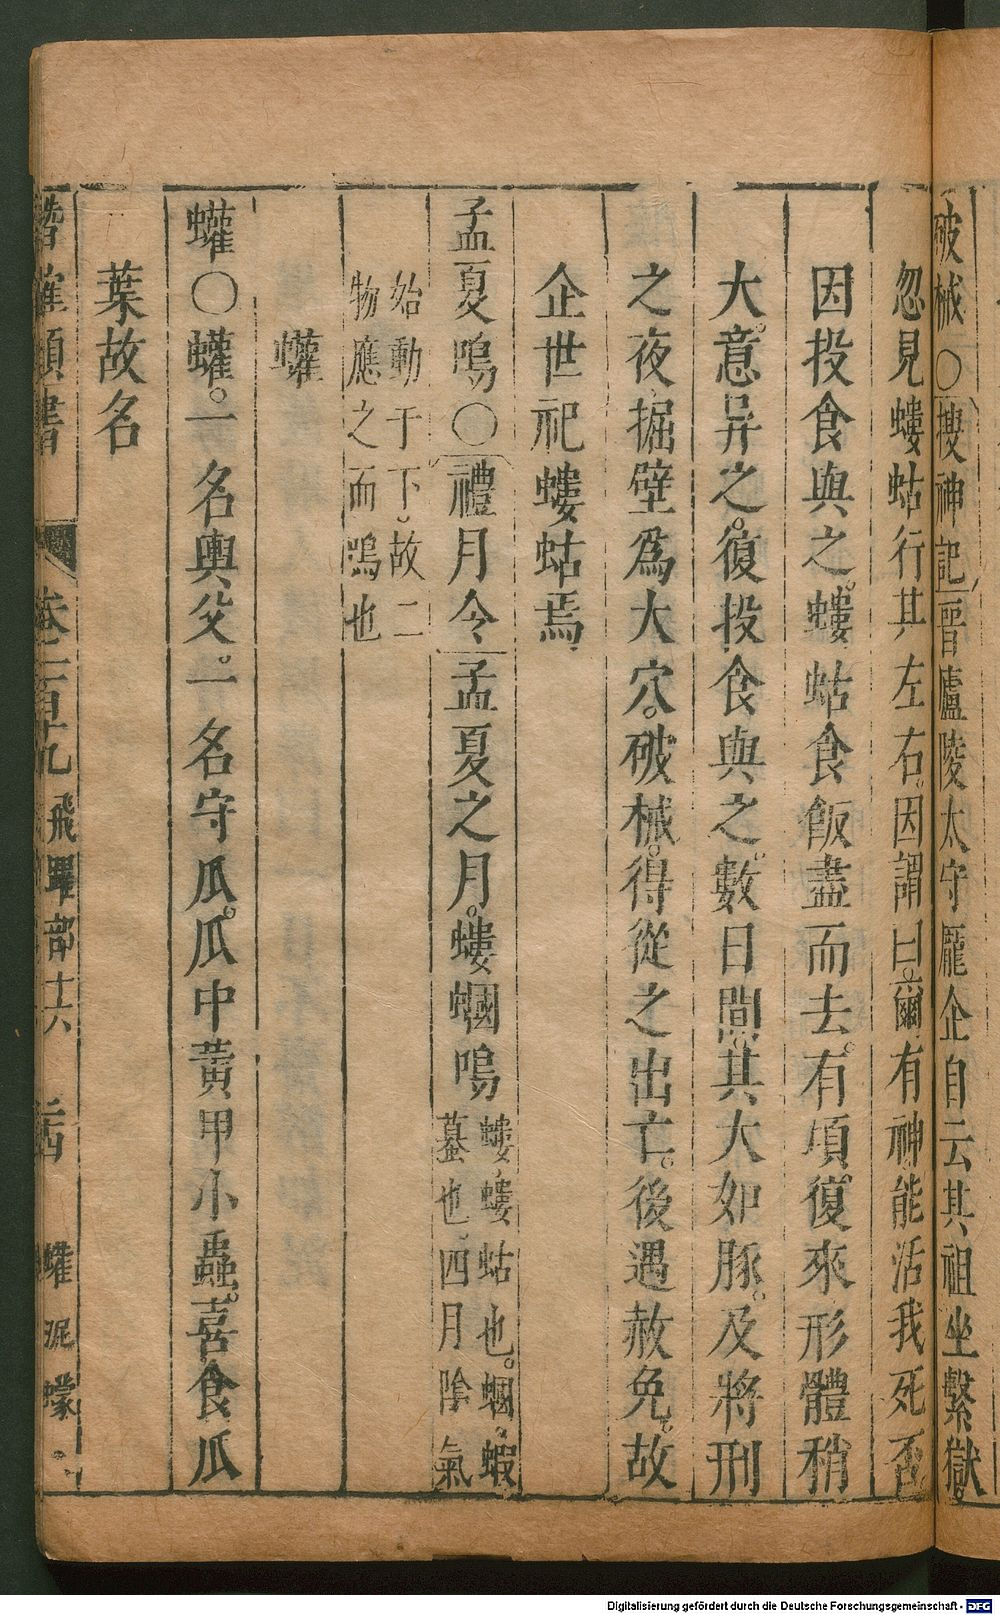 破械〇搜神記晉廬陵太守龐企自云其祖坐繫獄。
忽見螻蛄行其左右因謂曰爾有神能活我死否
因投食與之。螻蛄食飯盡而去。有頃復來形體稍
大。意异之。復投食與之。數日間。其大如豚。及將刑
之夜掘壁爲大穴。破械。得從之出亡。後遇赦免。故
企世祀螻蛄焉
孟夏鳴〇禮月令孟夏之月。螻蟈鳴
螻螻蛄也。蟈。蝦
蟇也。四月陰氣
始動于下。故二
物應之而鳴也
蠸
蠸〇蠸。一名輿父。一名守瓜。瓜中黃甲小蟲。喜食瓜
葉故名
類書 卷二百十九 飛躍部十六 蠸 泥 蠓
Digitalisierung gefördert durch die Deutsche Forschungsgemeinschaft - DFG